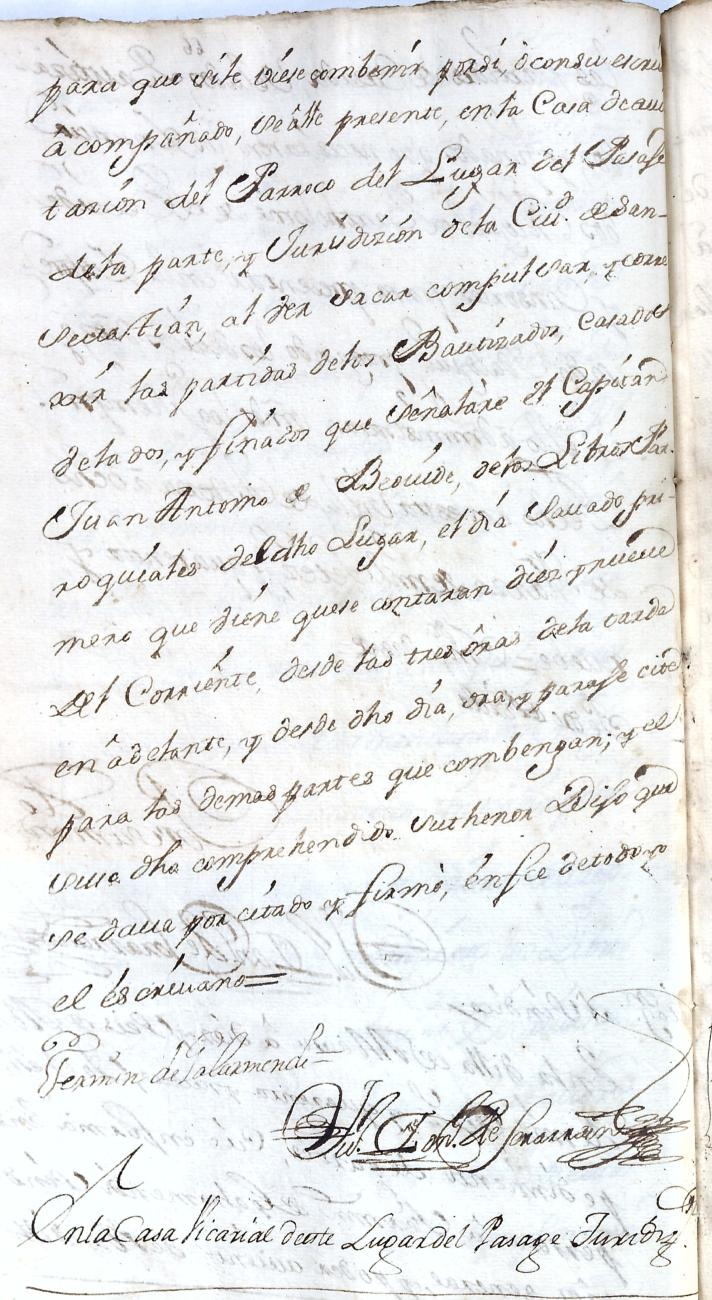 para que si le viese combenir por sí ò con su escri
acompañado, se alle presente, en la Casa de avi
tación del Parroco del Lugar del Pasage
de la parte, y Jurisdizión de la Ciud. de San-
sevastián, al ver sacar compulsar, y corre
xir las partidas de los, Bautizados, Casados
velados, y finados que señalàre el Capitan
Juan Antonio de Beovide, de los Libros Par-
roquiales del dho Lugar, el día Savado pri-
mero que viene que se contaran diez y nueve
del Corriente, desde las tres òras de la tarde
en adelante, y desde dho día, ora, y parage cite
para las demas partes que combengan; y el
suso dho comprehendido su thenor Dijo que
se dava por citado y firmò, én fee de todo yo
el éscrivano=
Fermin de
En la Casa Vicarial deste Lugar del Pasage Juridiz.